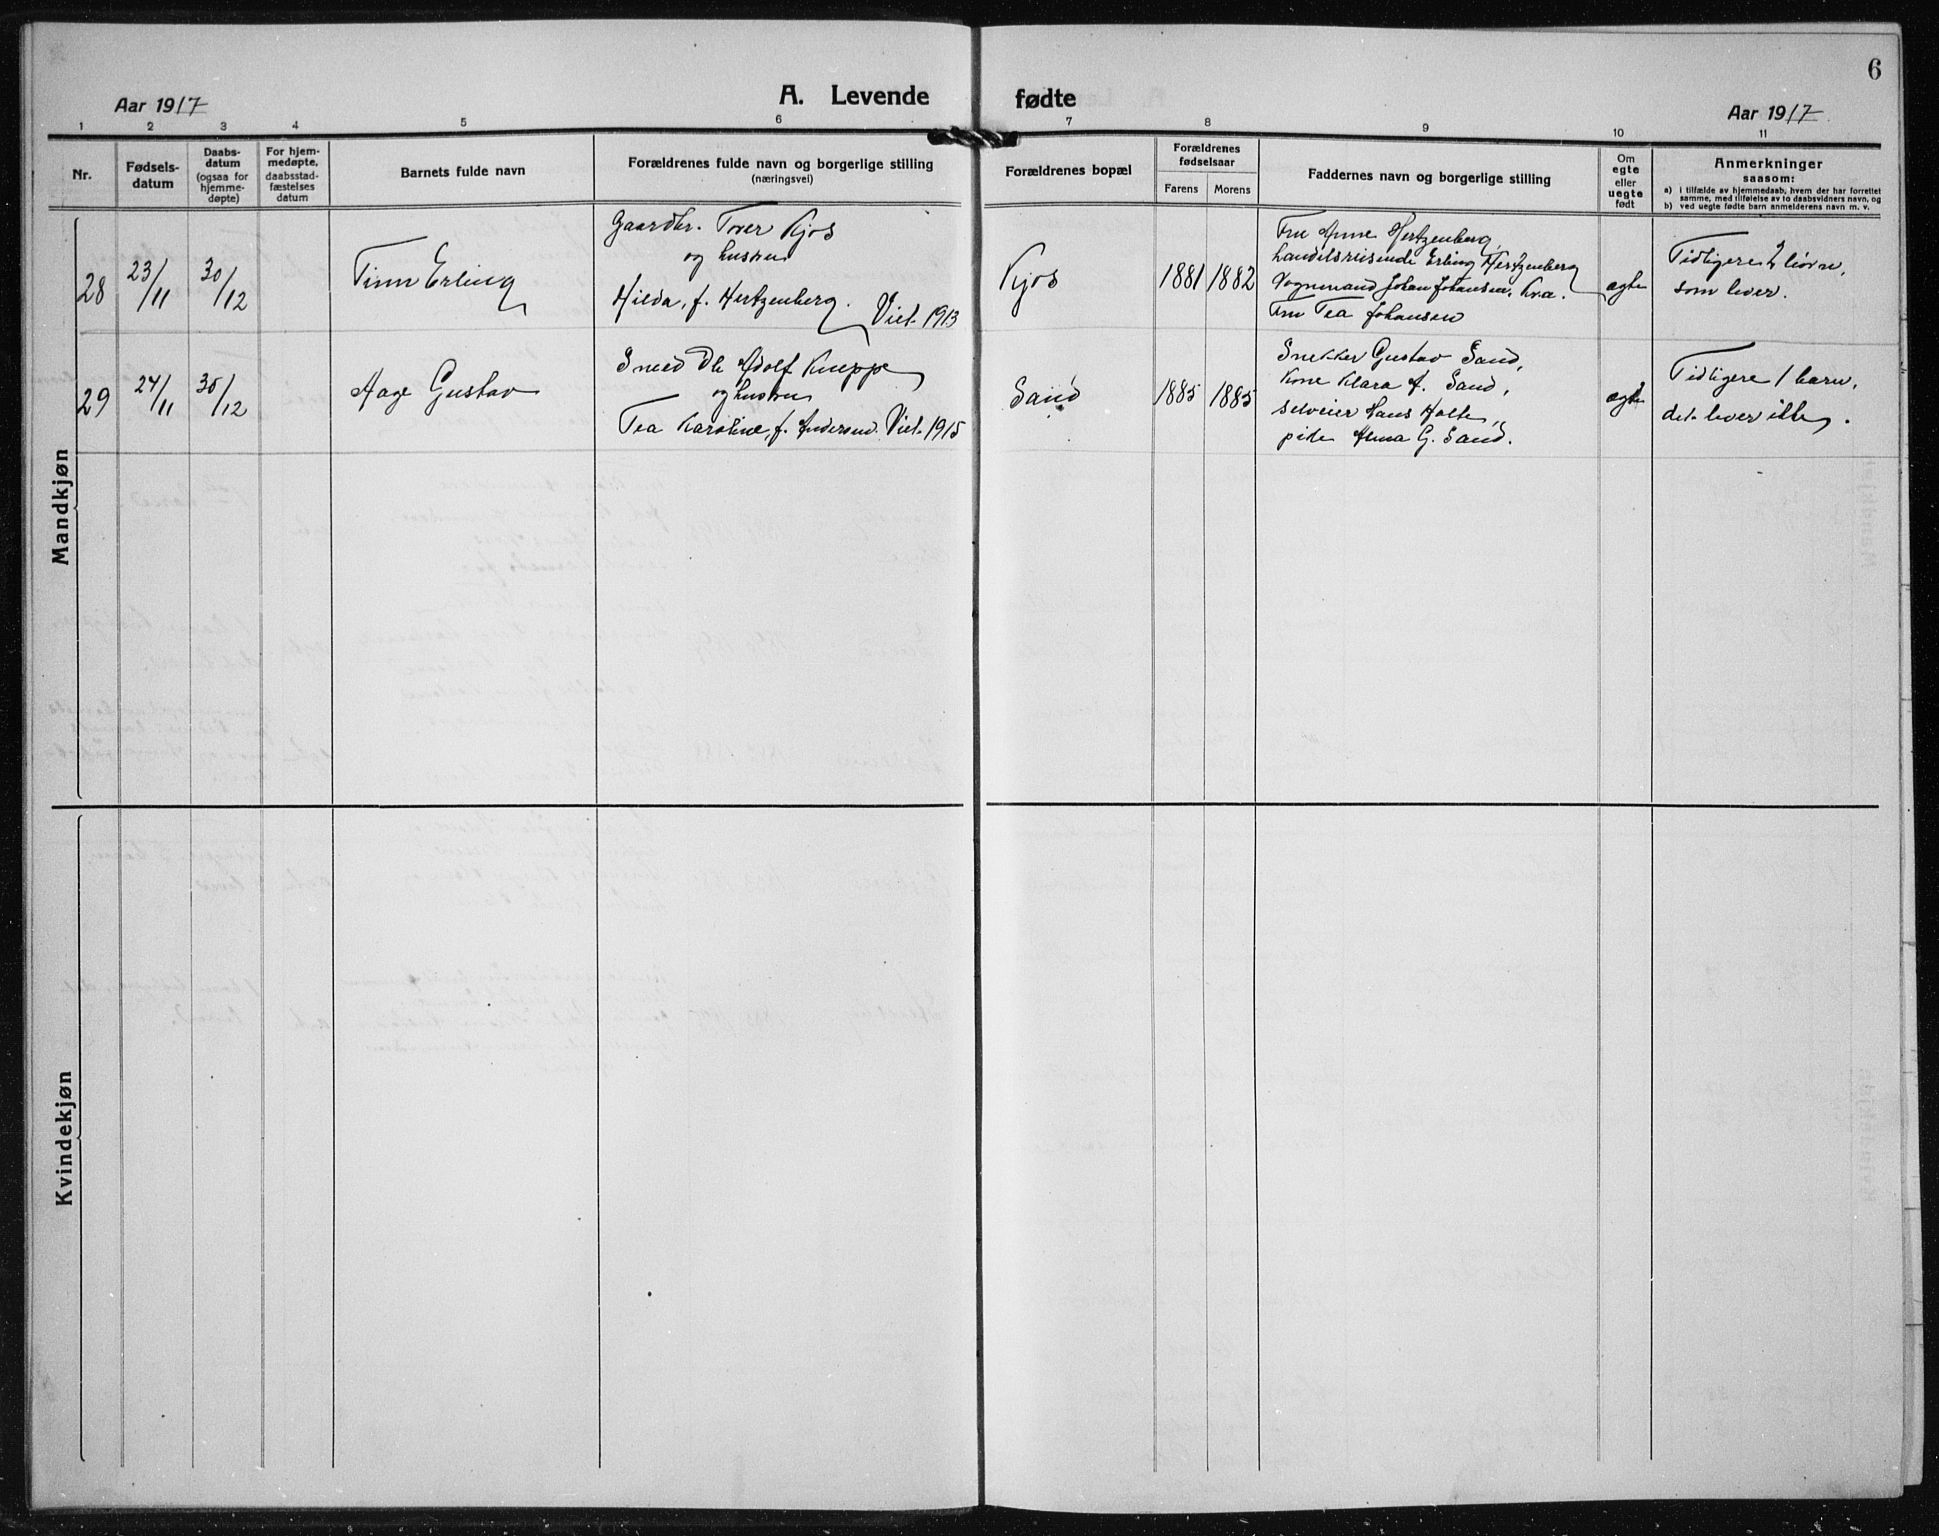 6
Aar 1917
A. Levende fødte
Aar 1917
1 2 3 4 5 6 7 8 9 10 11
Nr.
Fødsels-
datum
Daabs-
datum
(ogsaa for
hjemme-
døpte)
For hjem-
medøpte,
daabsstad-
fæstelses
datum
Barnets fulde navn
Forældrenes fulde navn og borgerlige stilling
(næringsvei)
Forældrenes bopæl
Forældrenes
fødselsaar
Farens Morens
Faddernes navn og borgerlige stilling
Om
egte
eller
uegte
født
Anmerkninger
saasom:
a) i tilfælde av hjemmedaab, hvem der har forrettet
samme, med tilføielse av to daabsvidners navn, og
b) ved uegte fødte barn anmelderens navn m. v.
Mandkjøn
28
23/11
30/12
Finn Erling
Gaardbr. Tover Kjos
og hustru
Hilda, f. Hertzenberg.
Viet 1913
Kjos
1881 1882
Fru Anne Hertzenberg,
handelsreisende Erling Hertzenberg
Vognmand Johan Johansen, Kra.
Fru Tea Johansen
ægte
Tidligere 2 børn,
som lever.
29
24/11
30/12
Aage Gustav
Smed Ole Adolf Kneppe
og hustru
Tea Karoline, f. Andersen. Viet 1915
Sand
1885 1885
Snekker Gustav Sand,
kone Klara A. Sand,
selveier Hans Holte,
pike Anna G. Sand.
ægte
Tidligere 1 barn,
det lever ikke.
Kvindekjøn